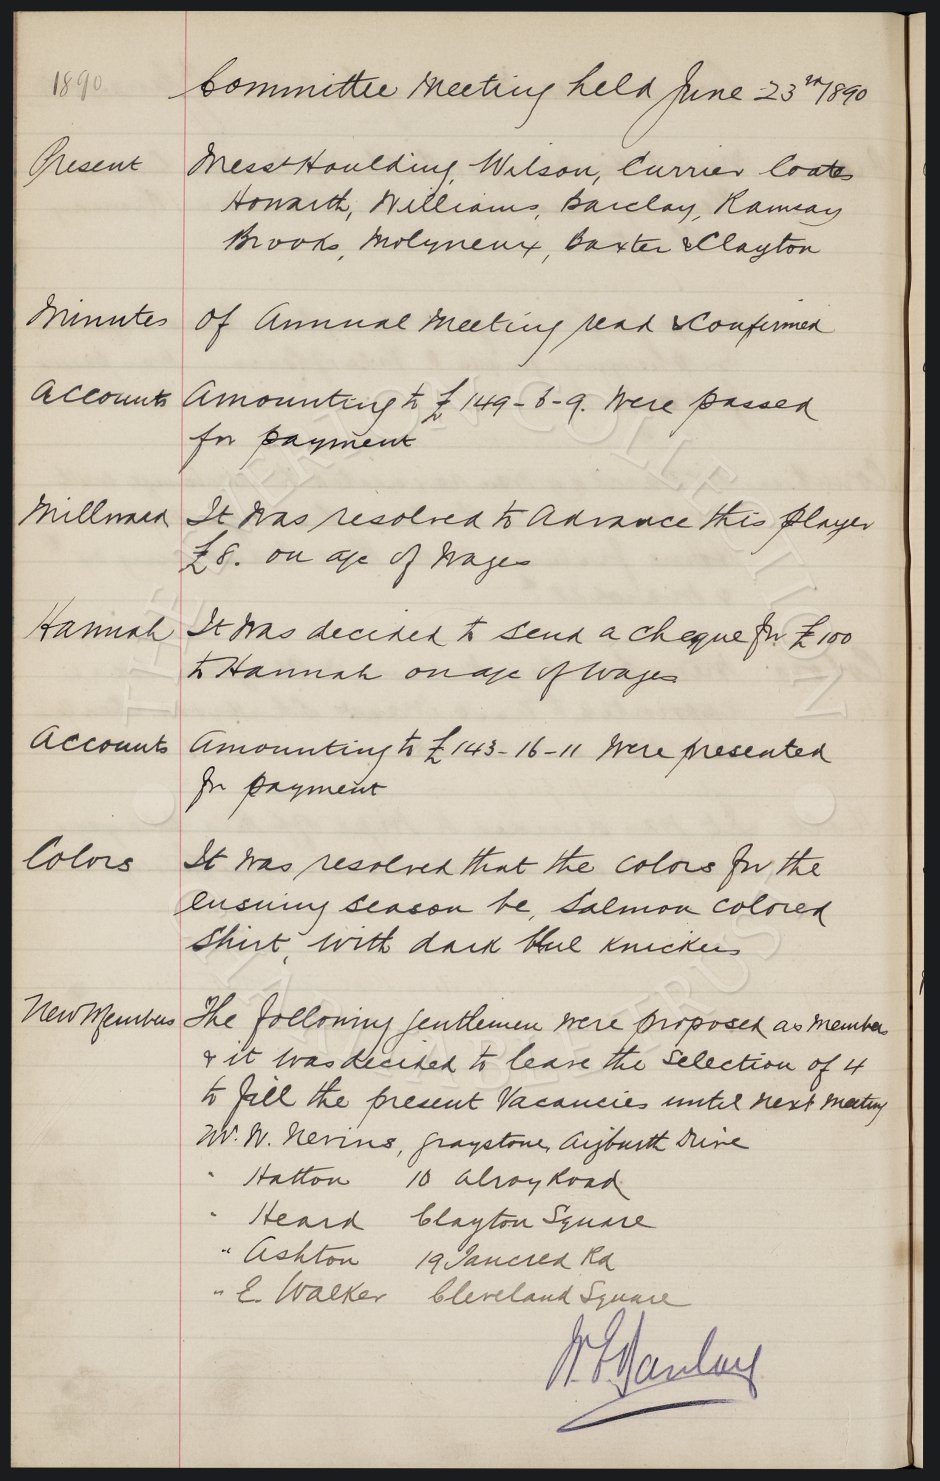 1890
Committee Meeting held June 23rd/1890
Present Messrs Houlding, Wilson, Currier Coates
Howarth, Williams, Barclay, Ramsay
Brooks, Molyneux, Baxter & Clayton
Minutes of Annual Meeting read & confirmed
Accounts Amounting to £149-6-9. Were passed
for payment
Millward It was resolved to Advance this player
£8. on a/c of Wages
Hannah It was decided to send a cheque for £100
to Hannah on a/c of Wages
Accounts Amounting to £143-16-11 Were presented
for payment
Colors It was resolved that the colors for the
ensuing season be, Salmon colored
Shirt, with dark blue knickers
New Members The following gentlemen were proposed as members
& it was decided to leave the selection of 4
to fill the present Vacancies until next meeting
Mr. W. Nevins, Graystone, Aigburth Drive
" Hatton 10 Alroy Road
" Heard Clayton Square
" Ashton 19 Tancred Rd
" E. Walker Cleveland Square
W. E. Barclay
THE EVERTON COLLECTION
CHARITABLE TRUST